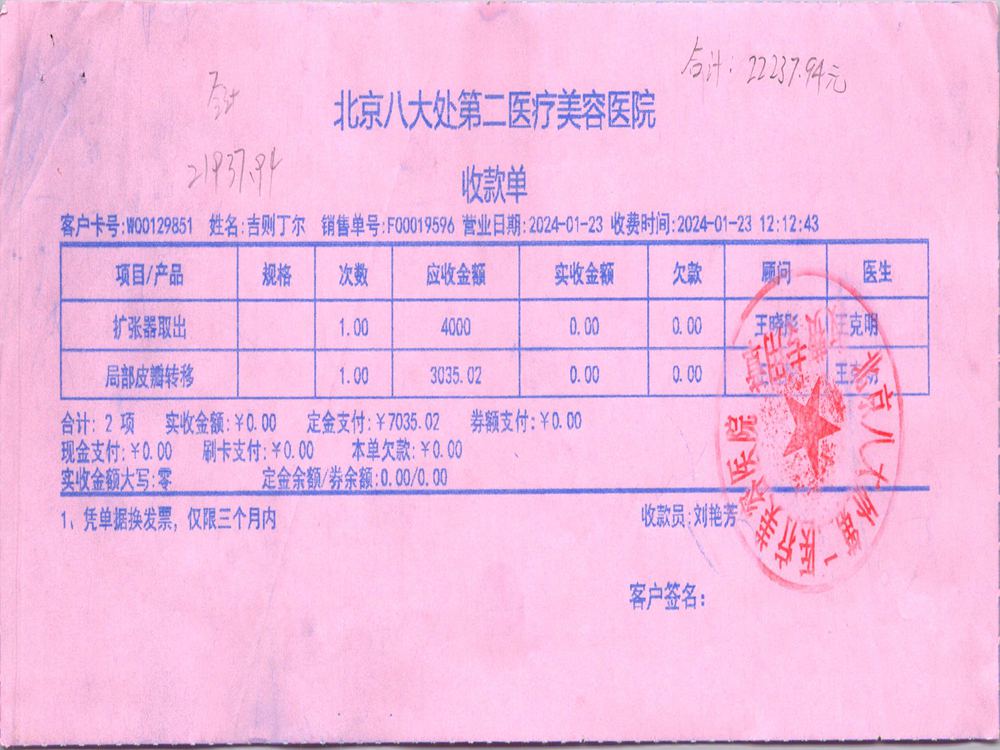 合计: 22237.94元
合计
21937.94
北京八大处第二医疗美容医院
收款单
客户卡号:W00129851 姓名:吉则丁尔 销售单号:F00019596 营业日期:2024-01-23 收费时间:2024-01-23 12:12:43
项目/产品 规格 次数 应收金额 实收金额 欠款 顾问 医生
扩张器取出 1.00 4000 0.00 0.00 王晓彤 王克明
局部皮瓣转移 1.00 3035.02 0.00 0.00 王克明
合计: 2 项 实收金额:￥0.00 定金支付:￥7035.02 券额支付:￥0.00
现金支付:￥0.00 刷卡支付:￥0.00 本单欠款:￥0.00
实收金额大写:零 定金余额/券余额:0.00/0.00
1、凭单据换发票, 仅限三个月内 收款员:刘艳芳
客户签名:
北京八大处第二医疗美容医院